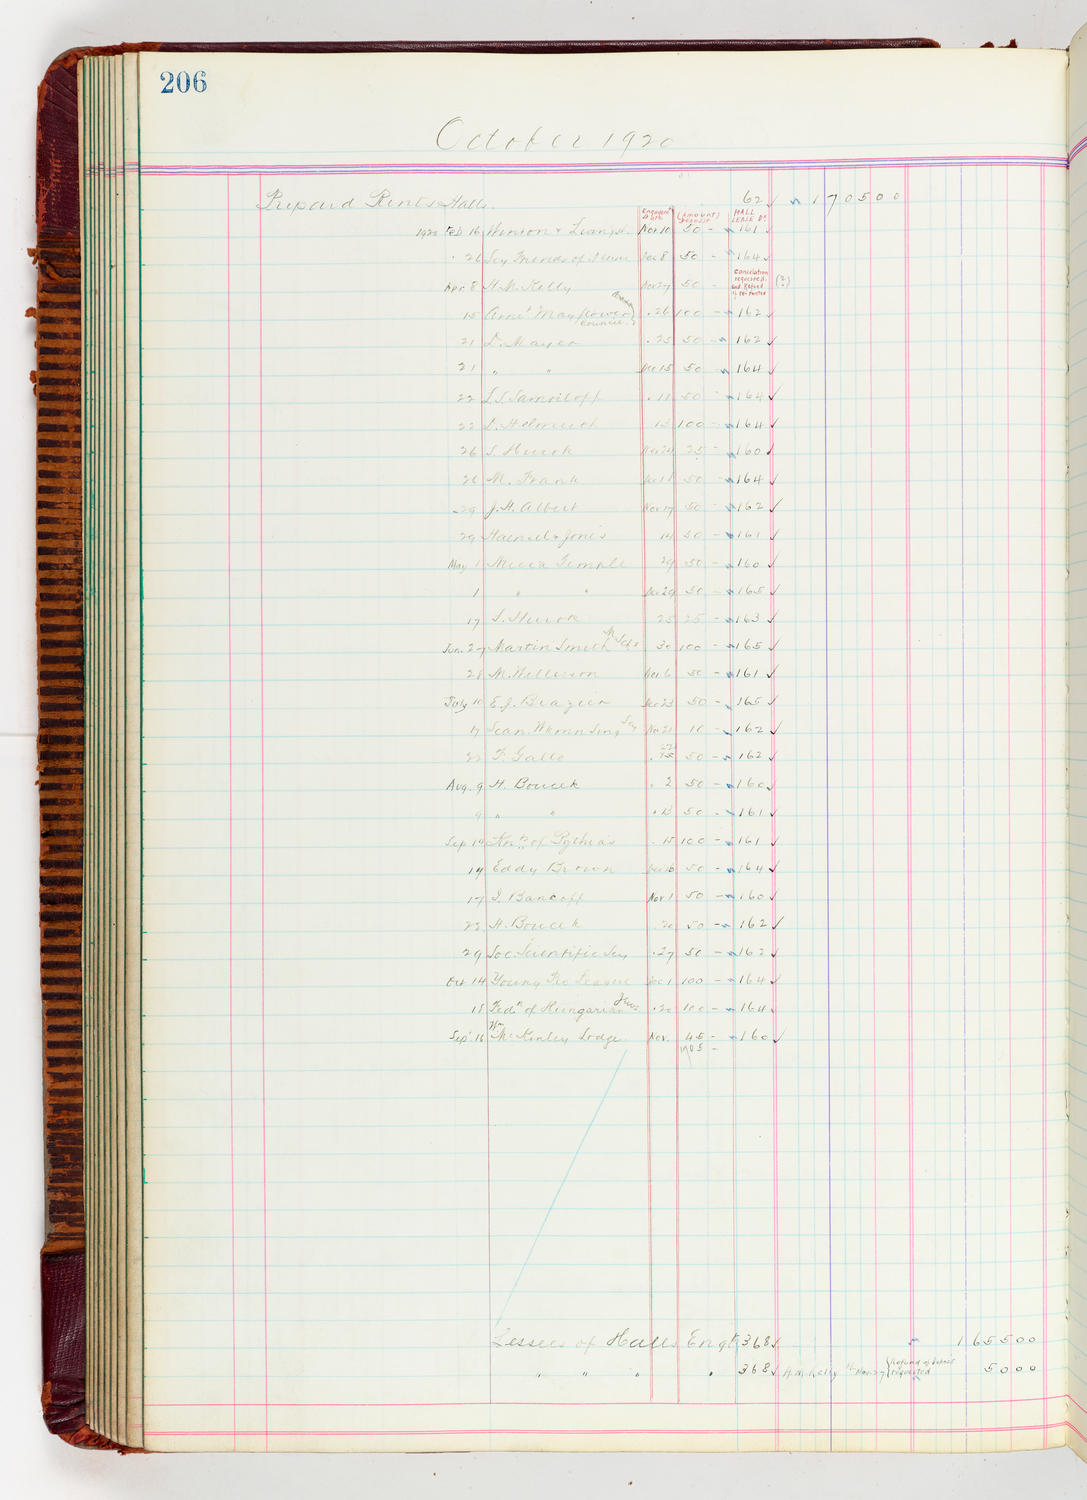 206
October 1920
Prepaid Rents Halls. 62 ✓ 1 7 0 5 0 0
Engagem't Date (Amount) Deposit HALL LEASE Dr.
1920 Feb 16 Winton & Livingst. Nov 10 50 - 161 ✓
" 26 Soy Friends of Music Dec 8 50 - 164 ✓
Apr. 8 H. M. Kelly Nov 27 50 - Cancelation requested. and Refund (?)
15 Amer Mayflower Council " 26 100 - 162 ✓
21 D. Mayer " 25 50 - 162 ✓
21 " " Dec 15 50 164 ✓
22 L. S. Samoiloff " 11 50 - 164 ✓
22 100 - 164 ✓
26 S. Hurok Nov 24 25 - 160 ✓
26 M. Frank Dec 18 50 - 164 ✓
29 J. H. Albert Nov 17 50 - 162 ✓
29 Haensel & Jones 14 50 - 161 ✓
May 1 Mecca Temple 29 50 - 160 ✓
1 " " Dec 29 50 - 165 ✓
17 S. Hurok 25 25 - 163 ✓
Jun. 27 Martin Smith M Schs 30 100 - 165 ✓
28 M. Wellisson Nov 6 50 - 161 ✓
July 10 E. J. Brazier Dec 23 50 - 165 ✓
17 Scan. Women Sing Soy Nov 21 10 - 162 ✓
22 F. Gallo 50 - 162 ✓
Aug. 9 H. Boucek " 2 50 - 160 ✓
9 " " " 12 50 - 161 ✓
Sep 14 Knts of Pythias " 15 100 - 161 ✓
14 Eddy Brown Dec 16 50 - 164 ✓
17 I. Bancoff Nov 1 50 - 160 ✓
22 H. Boucek " 20 50 - 162 ✓
29 Soc. Scientific Soy " 27 50 - 163 ✓
Oct 14 Young Leagure Dec 1 100 - 164 ✓
18 Fedn. of Hungarian Jews " 20 100 - 164 ✓
Sep. 16 Wm McKinley Lodge Nov. 45 - 160 ✓
1705 -
Lessees of Halls Engt 368 ✓ 1 6 5 5 0 0
" " " " 368 ✓ H. M. Kelly Nov 27 Refund of deposit requested 5 0 0 0